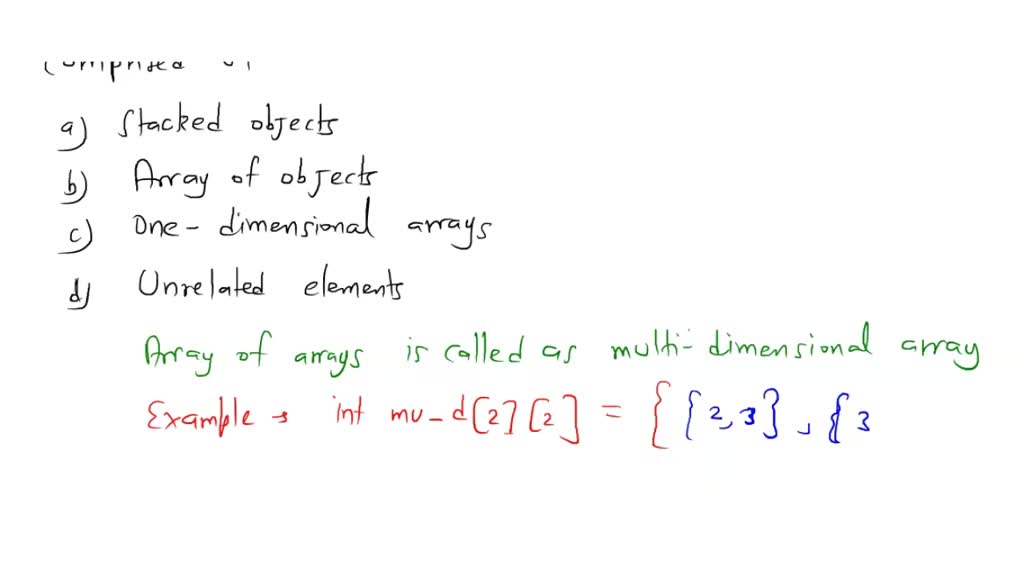 comprised of
a) Stacked objects
b) Array of objects
c) One-dimensional arrays
d) Unrelated elements
Array of arrays is called as multi-dimensional array
Example → int mu_d[2][2] = { {2,3}, {3